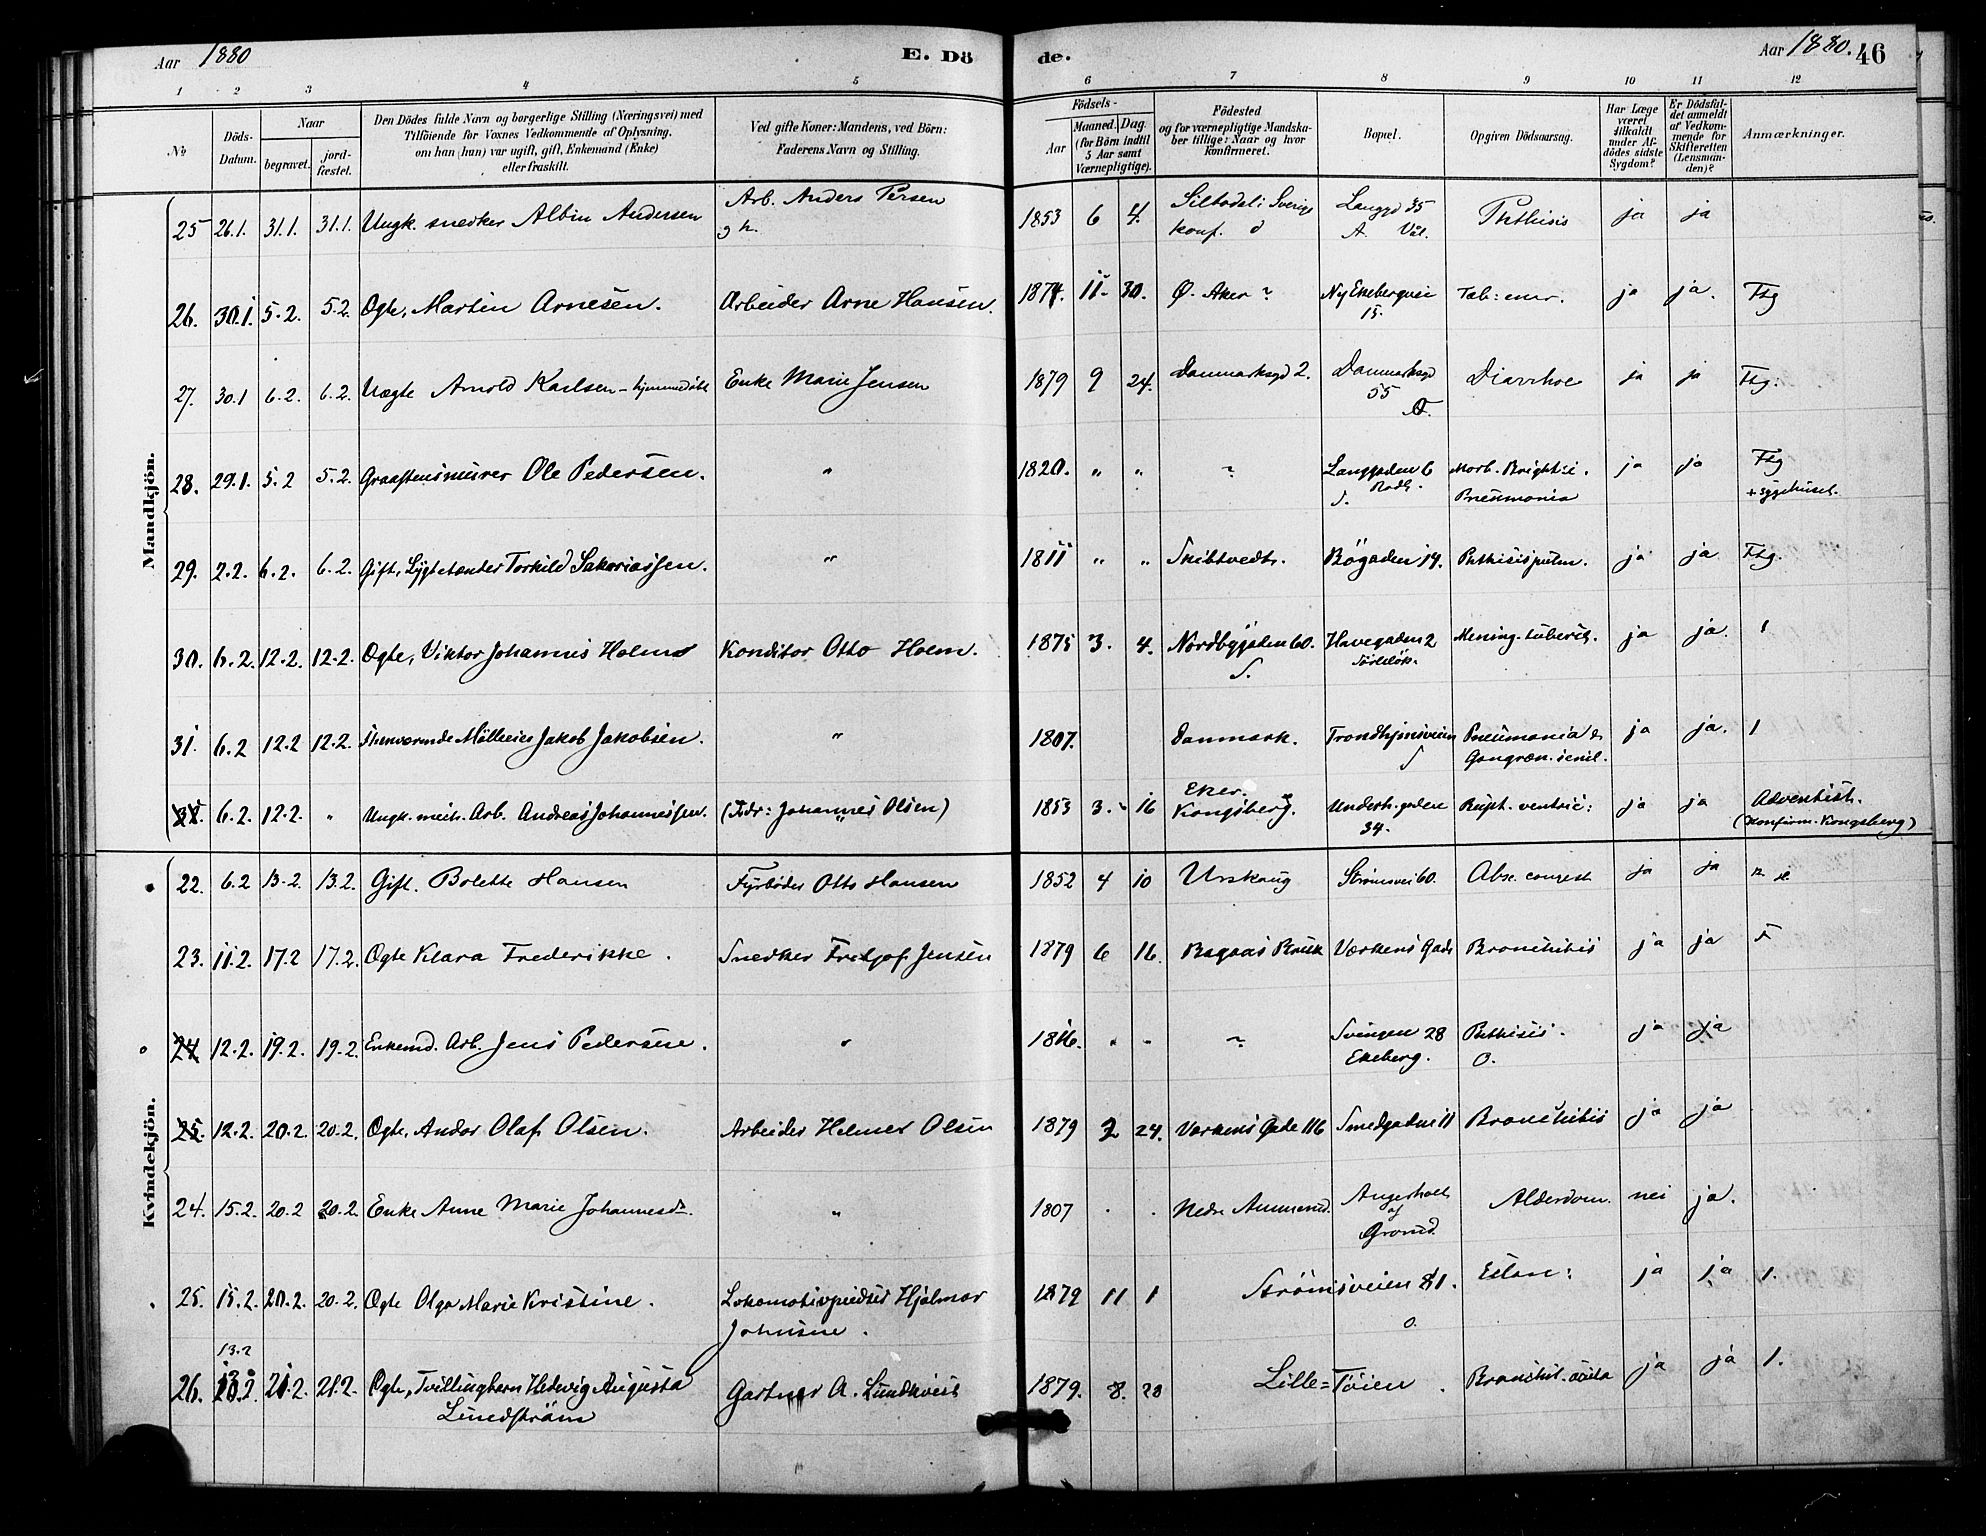 Aar 1880
E. Dö
de.
Aar 1880. 46
1 2 3 4 5 6 7 8 9 10 11 12
№
Döds-
Datum.
Naar
begravet.
jord-
fæstet.
Den Dödes fulde Navn og borgerlige Stilling (Næringsvei) med
Tilföiende for Voxnes Vedkommende af Oplysning.
om han (hun) var ugift, gift, Enkemand (Enke)
eller fraskilt.
Ved gifte Koner: Mandens, ved Börn:
Faderens Navn og Stilling.
Födsels-
Aar
Maaned.
Dag.
(for Börn indtil
5 Aar samt
Værnepligtige).
Födested
og for værnepligtige Mandska-
ber tillige: Naar og hvor
konfirmeret.
Bopæl.
Opgiven Dödsaarsag.
Har Læge
været
tilkaldt
under Af-
dödes sidste
Sygdom?
Er Dödsfal-
det anmeldt
af Vedkom-
mende for
Skifteretten
(Lensman-
den)?
Anmærkninger.
Mandkjön.
25 26.1. 31.1. 31.1. Ungk. snedker Albin Andersen Arb. Anders Persen 1853 6 4. Langgd 35 Phthisis ja ja
konf. A. Vål.
26. 30.1. 5.2. 5.2. Ægte, Martin Arnesen. Arbeider Arne Hansen. 1874. 11. 30. Ø. Aker ~ Ny Ekebergvei Tab: mes. ja ja. Ftg
15.
27. 30.1 6.2. 6.2. Uægte Arnold Karlsen - hjemmedøbt Enke Marie Jensen 1879 9 24. Danmarksgd 2. Danmarksgd Diarrhoe ja ja Ftg.
55
28. 29.1. 5.2 5.2. Graastensmurer Ole Pedersen. " 1820. " " ~ Langgaden 6 Morb. Brightii. ja ja Ftg
Pneumonia + sygehuset.
29. 2.2. 6.2. 6.2. Gift, Lygtetænder Torkild Sakariassen. " 1811 " " Skibtvedt. Bögaden 14. Phthisis pulm. ja ja Ftg.
30. 6.2. 12.2. 12.2. Ægte, Viktor Johannes Holm Konditor Otto Holm. 1875 3. 4. Nordbygaden 60. Havegaden 2 Mening. tubercl. ja ja. 1
S.
31. 6.2 12.2 12.2. Møllerier Jakob Jakobsen. " 1807. Danmark. Trondhjemsveien Pneumonia & ja ja. 1
S Gangræn. senil.
32. 6.2. 12.2. " Ungk. mech. Arb. Andreas Johannessen. (Fdr: Johannes Olsen) 1853 3. 16 Eker. Kongsberg. Underh.gaden Rupt. ventric: ja ja Adventist.
34. (Konfirm. Kongsberg)
Kvindekjön.
22. 6.2 13.2. 13.2. Gift. Bolette Hansen Fyrbøder Otto Hansen 1852 4 10 Urskoug Strömsvei 60. Absc. congest ja ja
23. 11.2. 17.2 17.2. Ægte Klara Frederikke. Snedker Fredjof Jensen 1879 6 16. Bagaas Brug Værkens Gade Bronchitis ja ja
24 12.2. 19.2. 19.2. Enkemd. Arb. Jens Pedersen. " 1816. " " ~ Svingen 28 Phthisis. ja ja
Ekeberg. O.
25. 12.2. 20.2. 20.2. Ægte, Andor Olaf Olsen. Arbeider Helmer Olsen 1879 2 24. Værkens Gade 116 Smedgaden 11 Bronchitis ja ja
24. 15.2. 20.2 20.2. Enke Anne Marie Johannesd. " 1807 Nedre Ammerud. Alderdom. nei ja.
af
Grorud.
25. 15.2. 20.2. 20.2. Ægte Olga Marie Kristine. Lokomotivpudser Hjalmar 1879 11 1 Strömsveien 81. Eclam: ja ja 1.
Johnsen. O.
13.2
26. 21.2. 21.2. Ægte, Tvillingbarn Hedevig Augusta Gartner A. Lundkvist 1879. 8. 28 Lille-Töien. Bronchit. acuta ja ja 1.
Lundström